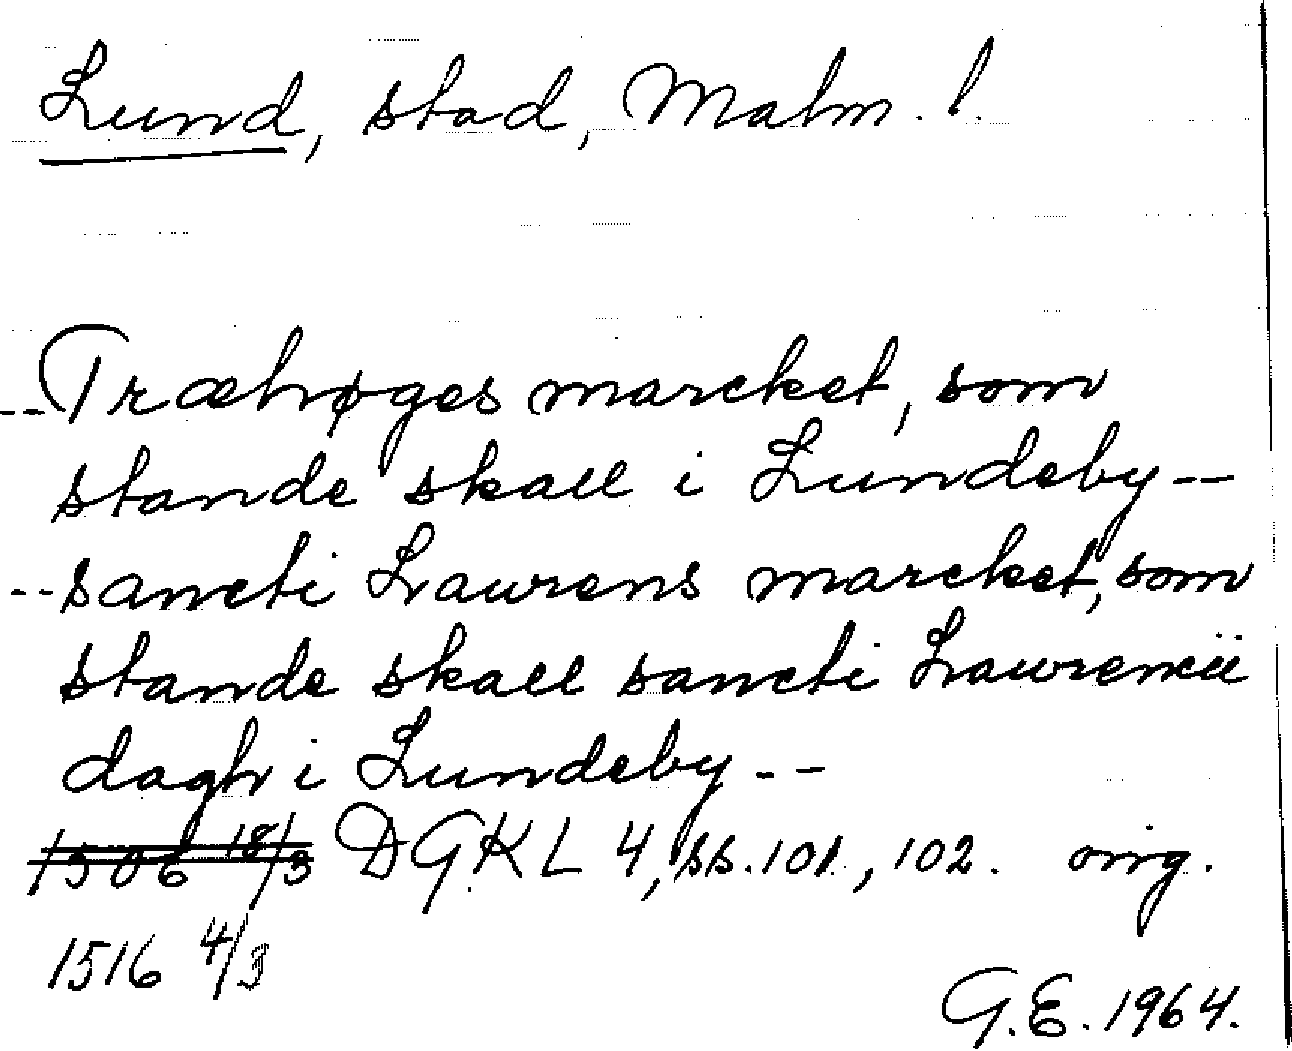 Lund, stad, Malm. l.
--Træhøges marcket, som
stande skall i Lundeby--
--sancti Laurens marcket, som
stande skall sancti Laurencii
dagh i Lundeby--
1506 18/3 DGKL 4, ss. 101, 102. orig.
1516 4/3
G.E. 1964.